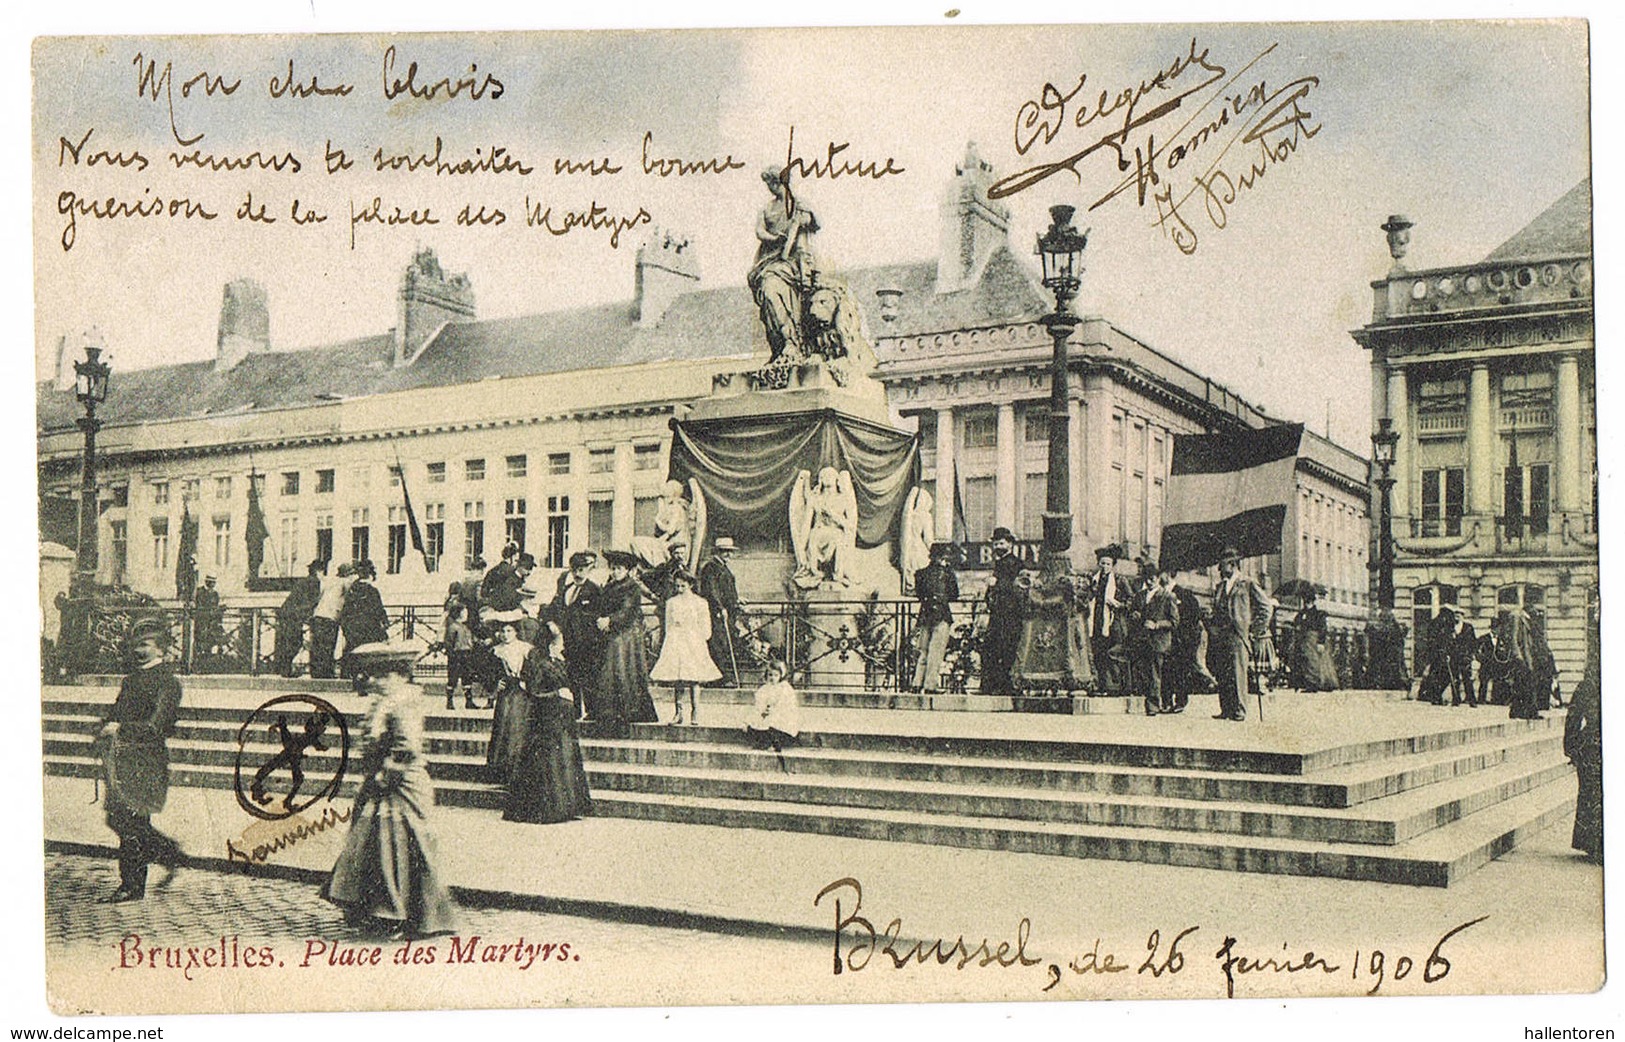 Mon cher Clovis
Nous venons te souhaiter une bonne future
guerison de la place des Martyrs
Delguste
Hamien
J Dutat
Souvenir
Bruxelles. Place des Martyrs.
Brussel, de 26 fevrier 1906
www.delcampe.net
hallentoren